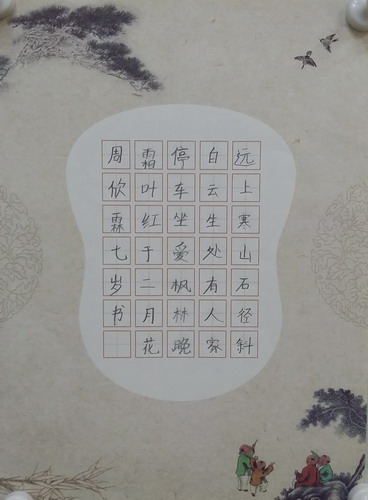 远上寒山石径斜
白云生处有人家
停车坐爱枫林晚
霜叶红于二月花
周欣霖七岁书